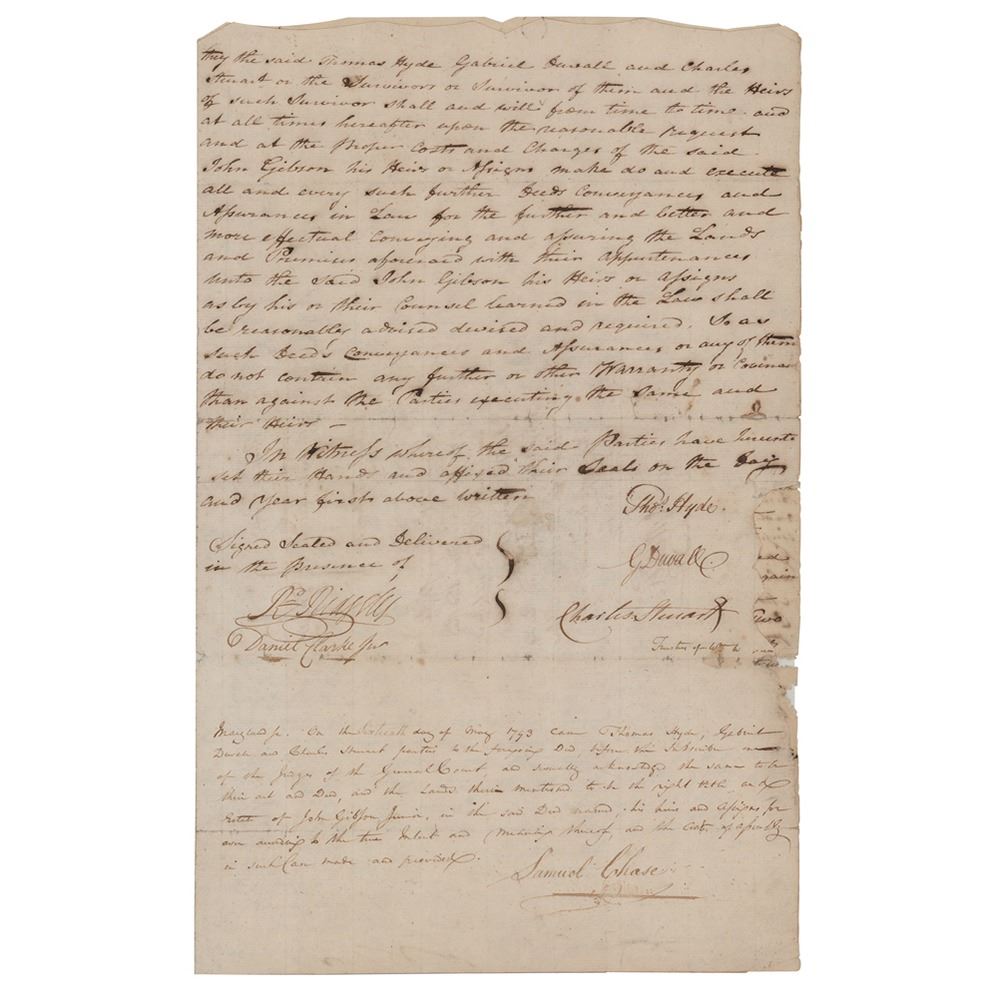 they the said Thomas Hyde Gabriel Duvall and Charles
Steuart or the Survivors or Survivor of them and the Heirs
of such Survivor shall and will from time to time and
at all times hereafter upon the reasonable request
and at the Proper Costs and Charges of the said
John Gibson his Heirs or Assigns make do and execute
all and every such further Deeds Conveyances and
Assurances in Law for the further and better and
more effectual conveying and assuring the Lands
and Premises aforesaid with their appurtenances
unto the Said John Gibson his Heirs or assigns
as by his or their Counsel learned in the Law shall
be reasonably advised devised and required. So as
such Deeds Conveyances and Assurances or any of them
do not contain any further or other Warranty or
than against the Parties executing the Same and
their Heirs —
In Witness whereof the said Parties have hereunto
set their Hands and affixed their Seals on the Day
and Year first above written
Thos. Hyde.
Signed Sealed and Delivered
in the Presence of
G Duvall
Charles Steuart
Daniel Clarke Jur
Trustees
Maryland sc. On the day of May 1793 came Thomas Hyde, Gabriel
Duvall and Charles Steuart parties to the foregoing Deed, before the Subscriber one
of the Judges of the General Court, and severally acknowledged the same to be
their act and Deed, and the Lands therein mentioned to be the right title and
Estate of John Gibson Junior, in the said Deed named, his heirs and Assigns for
ever according to the true Intent and Meaning thereof, and the Acts of Assembly
in such Case made and provided.
Samuel Chase